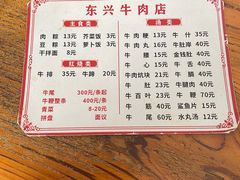 东兴牛肉店
主食类
肉粽 13元 芥菜饭 3元
豆粽 13元 萝卜饭 3元
干拌面 8元
红烧类
牛排 35元 牛蹄 20元
牛尾 300元/条起
牛鞭整条 400元/条
青菜 8-20元
拼盘 面议
汤类
牛肉粳 13元 牛什 35元
牛肉丸 16元 牛肚岸 60元
牛腰 16元 金钱肚 40元
牛心 15元 牛舌 40元
牛肉炕块 21元 牛肚 40元
牛肚 21元 牛腱肉 40元
牛百叶 23元 牛鞭 70元
牛筋 40元 鲨鱼片 15元
牛尾 60元 水丸汤 12元